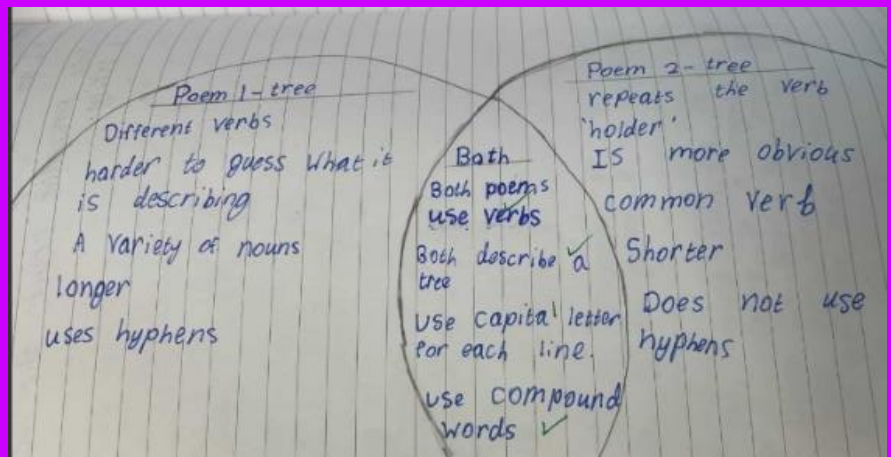 Poem 1 - tree
Different verbs
harder to guess what it
is describing
A variety of nouns
longer
uses hyphens
Both
Both poems
use verbs
Both describe a
tree
use capital letter
for each line.
use compound
words
Poem 2 - tree
repeats the verb
'holder'
IS more obvious
common verb
Shorter
Does not use
hyphens